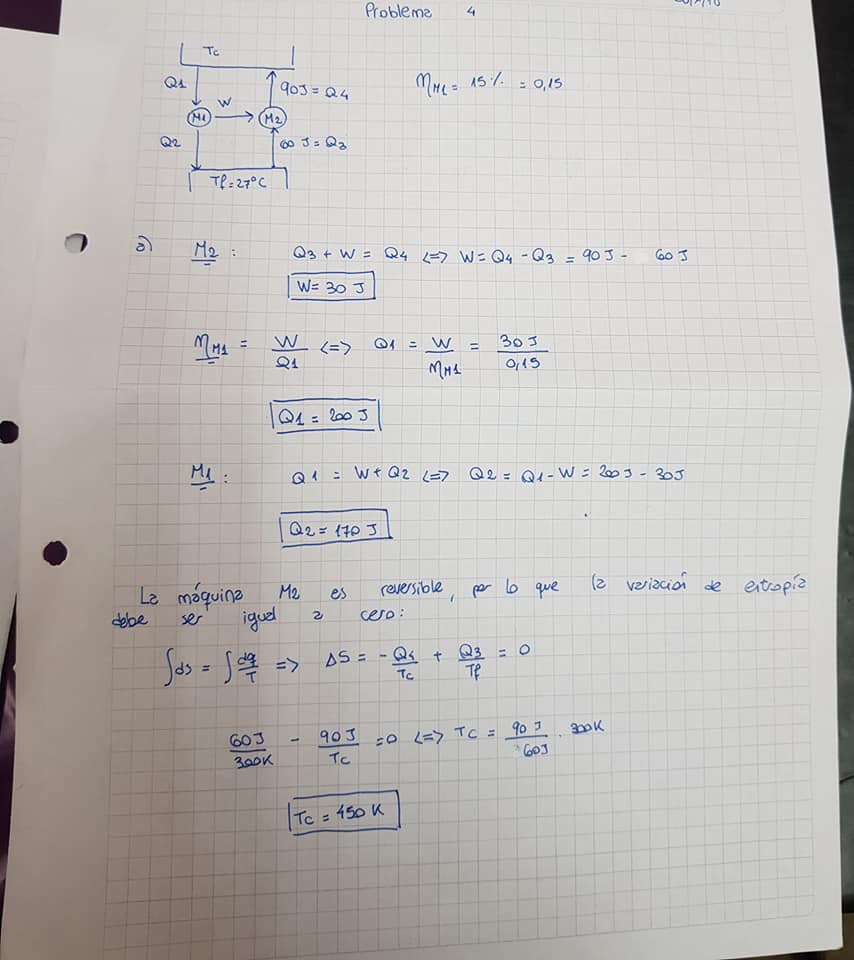 Problema 4
Tc
Q1
90J = Q4
W
M1
M2
Q2
60 J = Q3
Tf = 27°C
ηM1 = 15% = 0,15
a) M2 : Q3 + W = Q4 <=> W = Q4 - Q3 = 90J - 60J
W = 30 J
ηM1 = W/Q1 <=> Q1 = W/ηM1 = 30J/0,15
Q1 = 200 J
M1 : Q1 = W + Q2 <=> Q2 = Q1 - W = 200J - 30J
Q2 = 170 J
La máquina M2 es reversible, por lo que la variación de entropía
debe ser igual a cero:
∫ds = ∫dq/T => ΔS = - Q4/Tc + Q3/Tf = 0
60J/300K - 90J/Tc = 0 <=> Tc = 90J/60J . 300K
Tc = 450 K